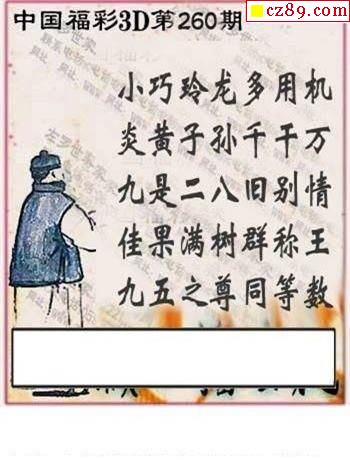 cz89.com
中国福彩3D第260期
小巧玲龙多用机
炎黄子孙千千万
九是二八旧别情
佳果满树群称王
九五之尊同等数